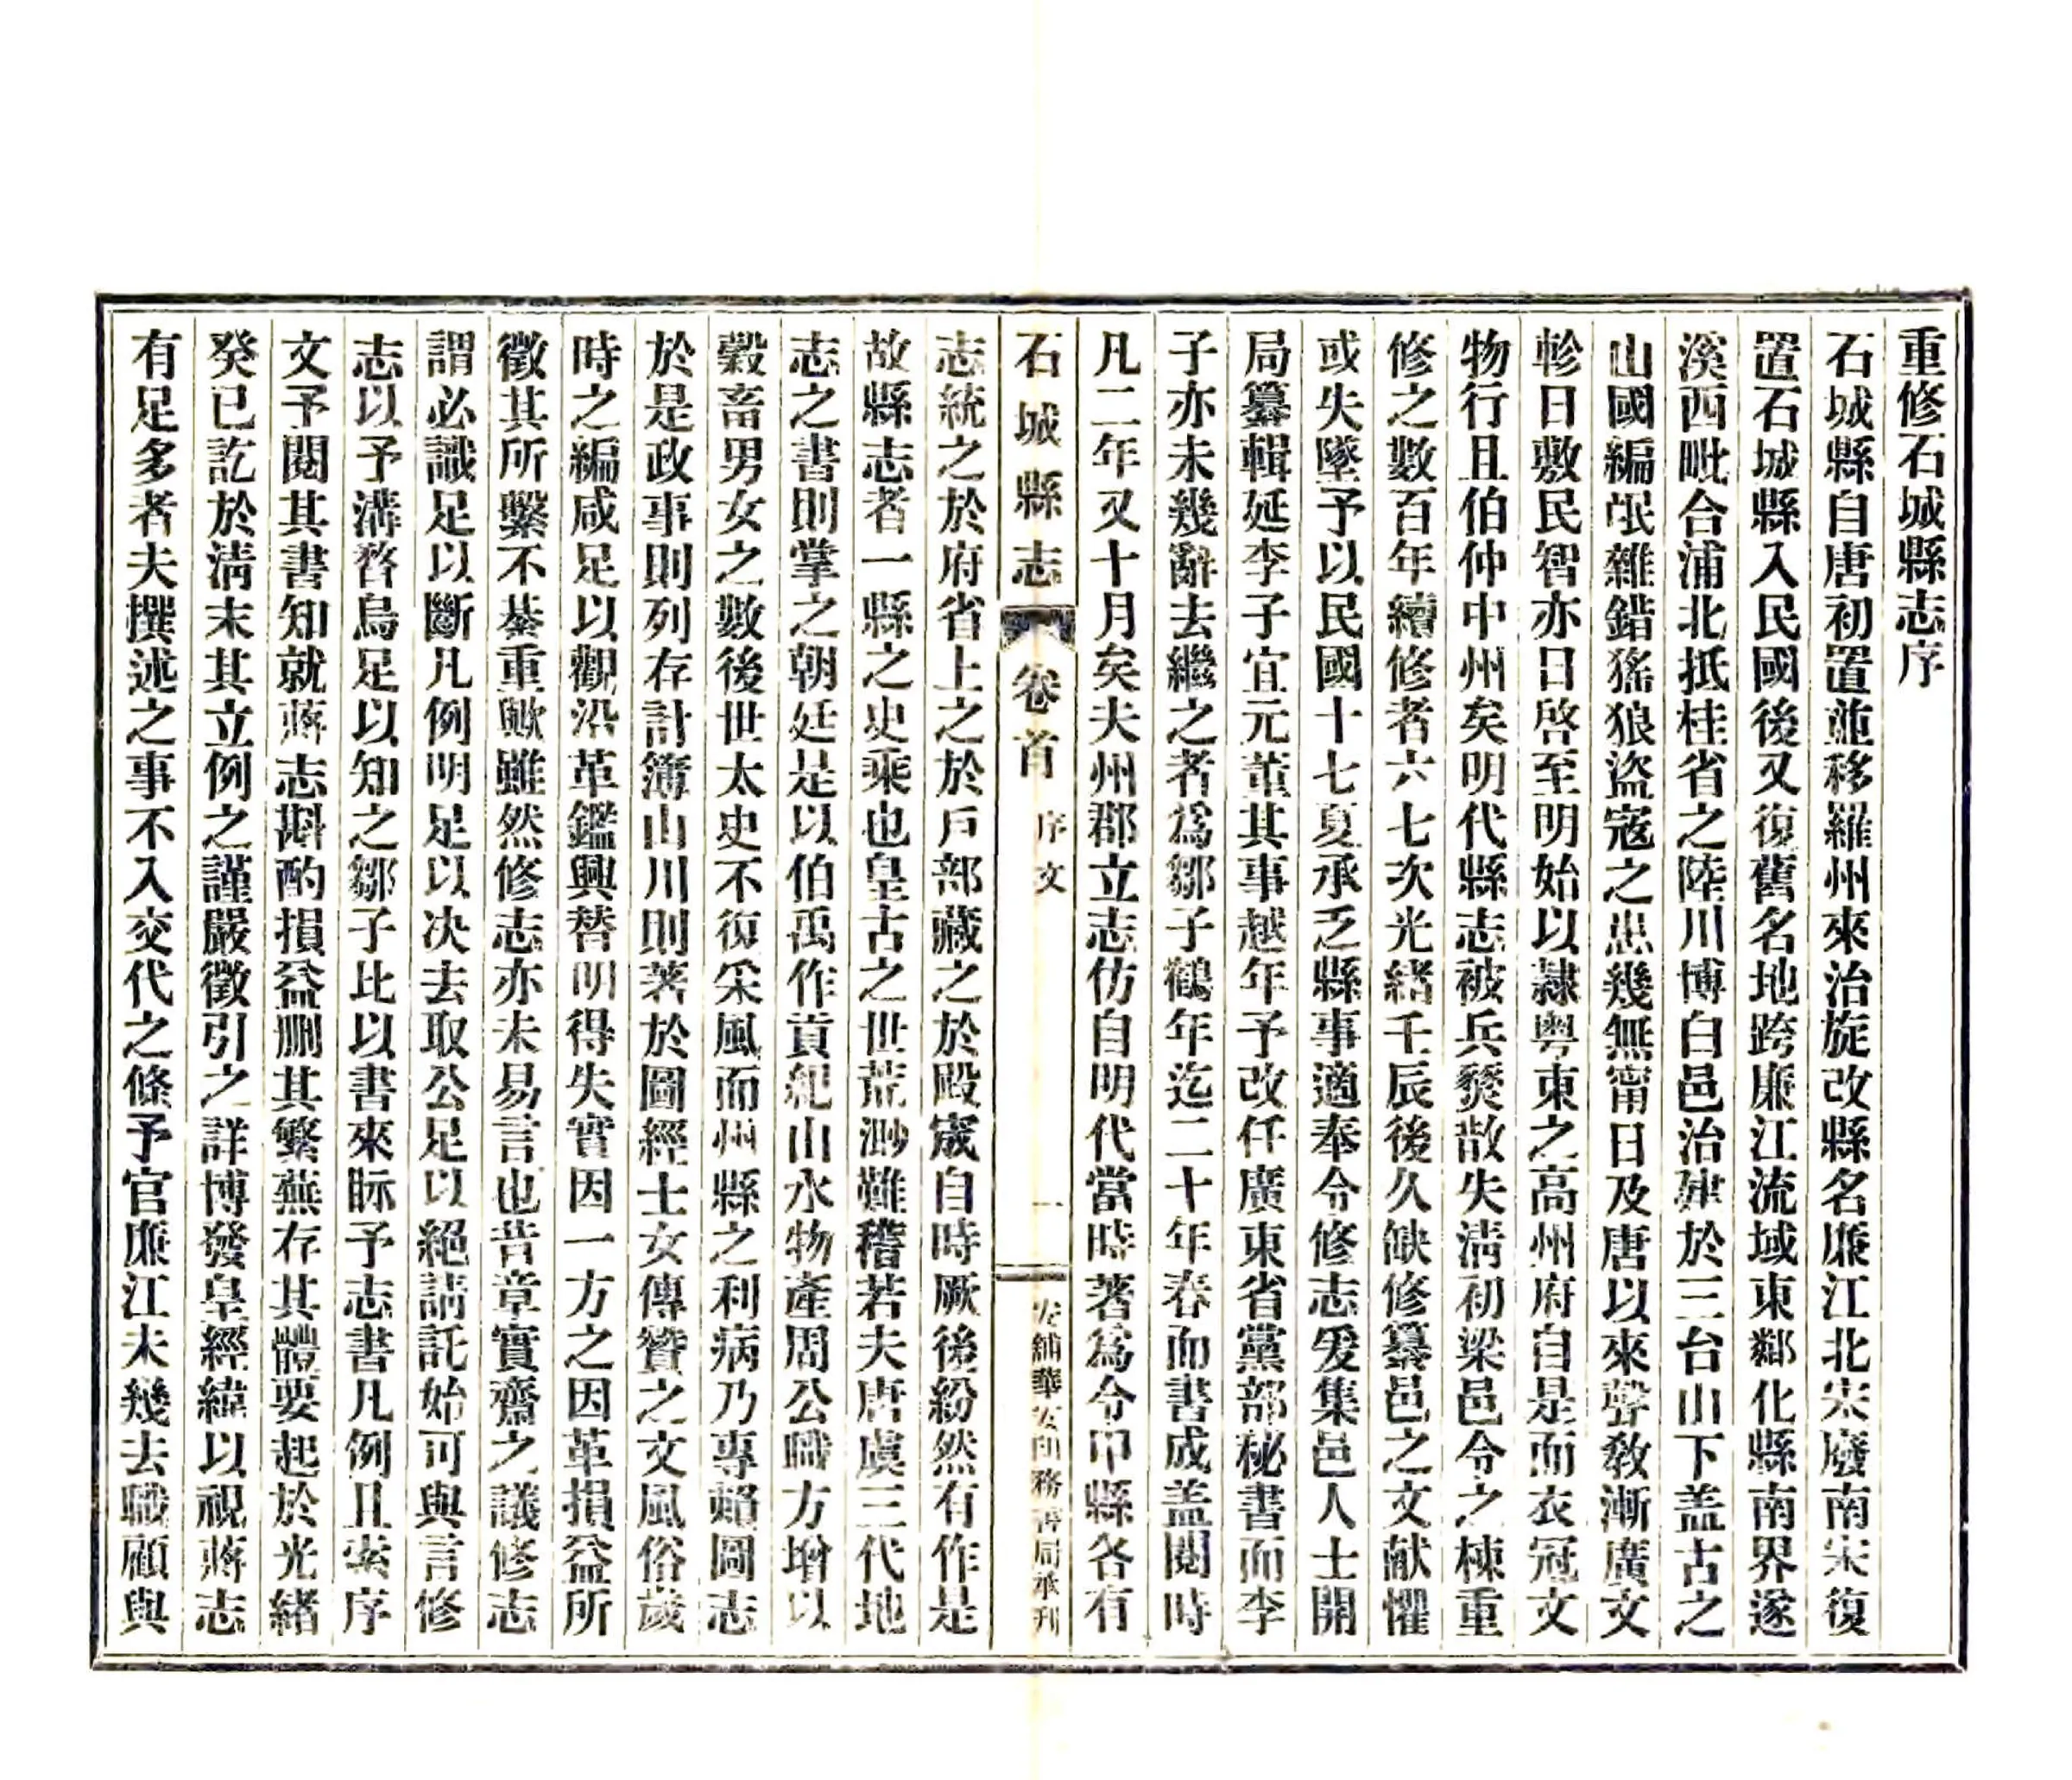 重修石城縣志序
石城縣自唐初置並移羅州來治旋改縣名廉江北宋廢南宋復
置石城縣入民國後又復舊名地跨廉江流域東鄰化縣南界遂
溪西毗合浦北抵桂省之陸川博白邑治建於三台山下盖古之
山國編氓雜錯猺狼盜寇之患幾無甯日及唐以來聲敎漸廣文
軫日敷民智亦日啓至明始以隷粤東之高州府自是而衣冠文
物行且伯仲中州矣明代縣志被兵燹散失淸初梁邑令之棟重
修之數百年續修者六七次光緒千辰後久缺修纂邑之文献懼
或失墜予以民國十七夏承乏縣事適奉令修志爰集邑人士開
局纂輯延李子宜元董其事越年予改仟廣東省黨部秘書而李
子亦未幾辭去繼之者爲鄒子鶴年迄二十年春而書成盖閱時
凡二年又十月矣夫州郡立志仿自明代當時著爲令甲縣各有
石城縣志 卷首 序文 一 安鋪華安印務書局承刊
志統之於府省上之於戶部藏之於殿宬自時厥後紛然有作是
故縣志者一縣之史乘也皇古之世荒渺難稽若夫唐虞三代地
志之書則掌之朝廷是以伯禹作貢紀山水物產周公職方增以
穀畜男女之數後世太史不復采風而州縣之利病乃專賂圖志
於是政事則列存計簿山川則著於圖經士女傳贊之文風俗歲
時之編咸足以觀沿革鑑興替明得失實因一方之因革損益所
徵其所繫不綦重歟雖然修志亦未易言也昔章實齋之議修志
謂必識足以斷凡例明足以决去取公足以絕請託始可與言修
志以予溝瞀烏足以知之鄒子比以書來眎予志書凡例且索序
文予閱其書知就蔣志斟酌損益删其繁蕪存其體要起於光緒
癸已訖於淸末其立例之謹嚴徵引之詳博發皇經緯以視蔣志
有足多者夫撰述之事不入交代之條予官廉江未幾去職顧與